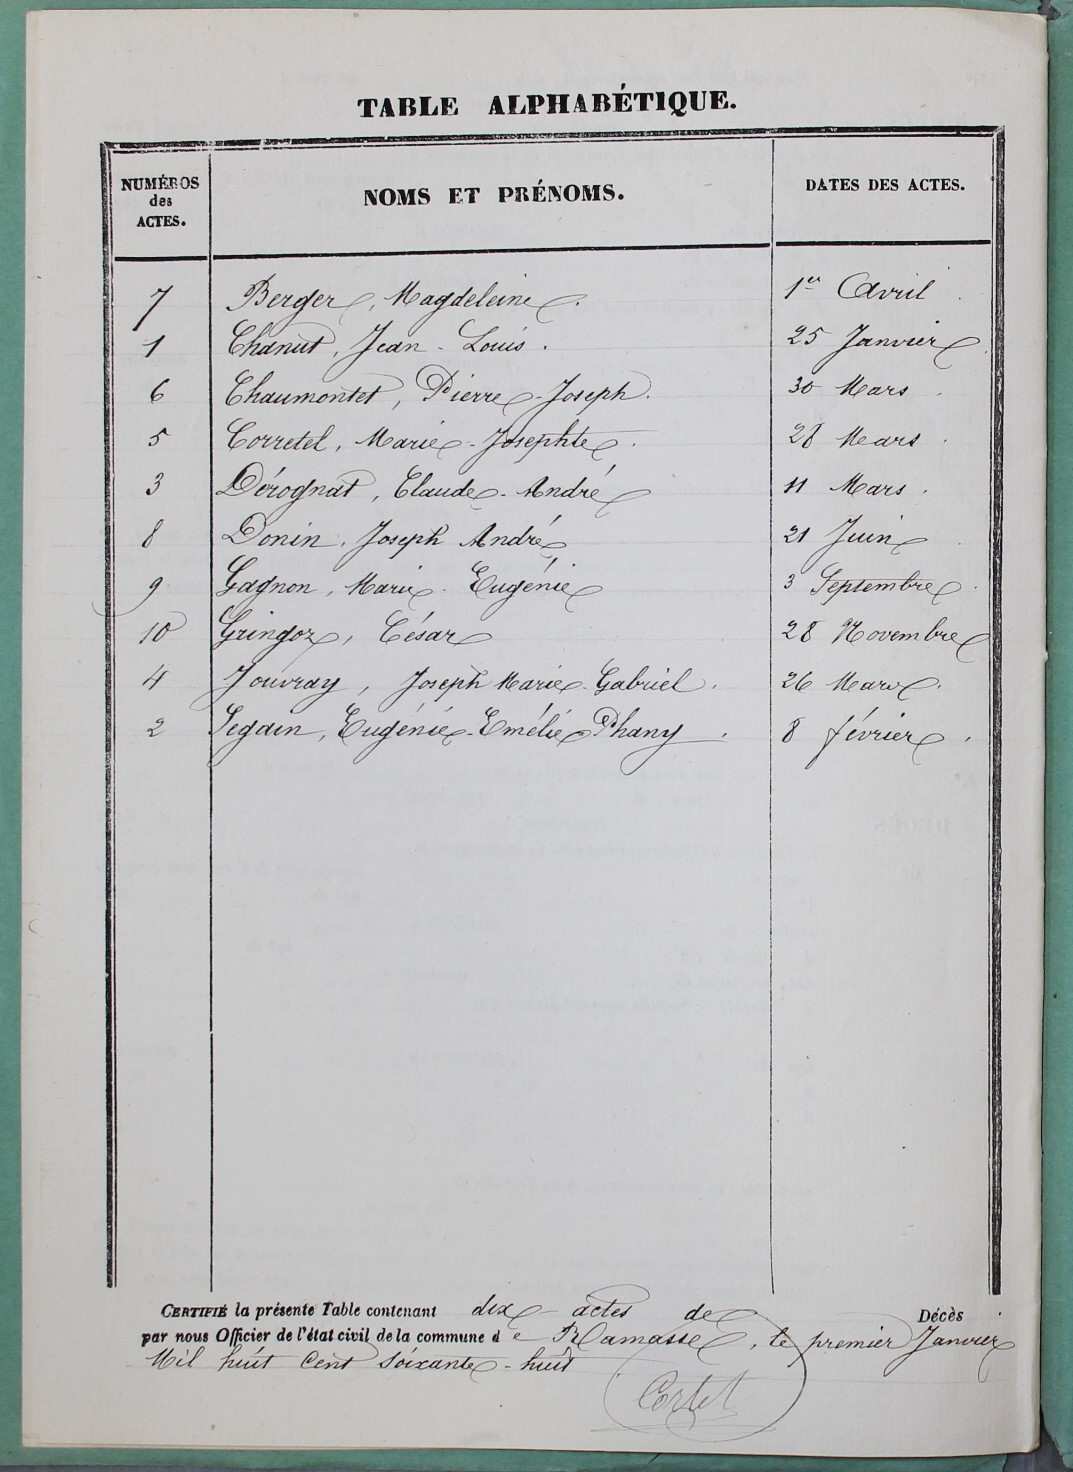 TABLE ALPHABÉTIQUE.
NUMÉROS
des
ACTES.
NOMS ET PRÉNOMS.
DATES DES ACTES.
7 Berger, Magdeleine. 1er Avril
1 Chanut, Jean-Louis. 25 Janvier
6 Chaumontet, Pierre-Joseph. 30 Mars
5 Corretel, Marie-Josephte. 28 Mars
3 Dérognat, Claude-André 11 Mars.
8 Donin, Joseph André 21 Juin
9 Gagnon, Marie-Eugénie 3 Septembre
10 Gringoz, César 28 Novembre
4 Jouvray, Joseph Marie-Gabriel. 26 Mars.
2 Segain, Eugénie-Emélie Phany. 8 février.
CERTIFIÉ la présente Table contenant dix actes de Décès
par nous Officier de l'état civil de la commune de Ramasse, le premier Janvier
Mil huit cent soixante-huit
Cortet